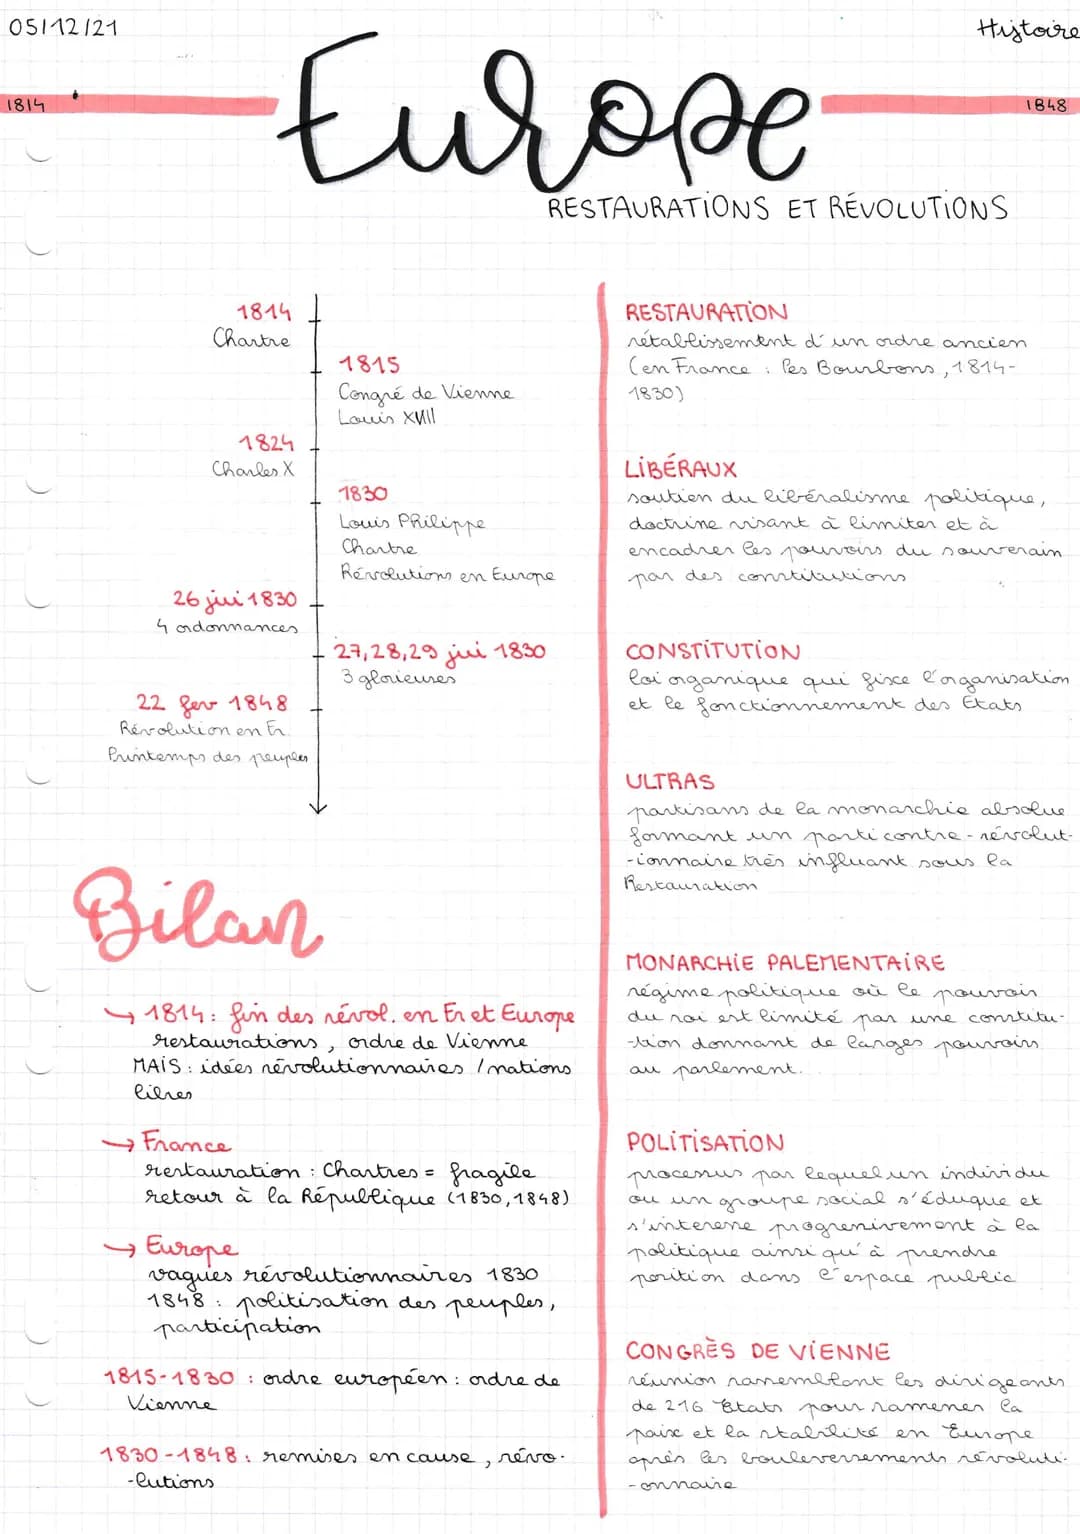 05/12/21
Histoire
1814
Europe
1848
RESTAURATIONS ET RÉVOLUTIONS
1814
Chartre
1815
Congré de Vienne
Louis XVIII
1824
Charles X
1830
Louis Philippe
Chartre
Révolutions en Europe
26 jui 1830
4 ordonnances
27,28,29 jui 1830
3 glorieuses
22 fev 1848
Révolution en Fr.
Printemps des peuples
Bilan
→ 1814 : fin des révol. en Fr et Europe
restaurations, ordre de Vienne
MAIS : idées révolutionnaires / nations
libres
→ France
restauration : Chartres = fragile
retour à la République (1830, 1848)
→ Europe
vagues révolutionnaires 1830
1848 : politisation des peuples,
participation
1815-1830 : ordre européen : ordre de
Vienne
1830-1848 : remises en cause, révo-
-lutions
RESTAURATION
rétablissement d'un ordre ancien
(en France : les Bourbons, 1814-
1830)
LIBÉRAUX
soutien du libéralisme politique,
doctrine visant à limiter et à
encadrer les pouvoirs du souverain
par des constitutions
CONSTITUTION
loi organique qui fixe l'organisation
et le fonctionnement des États
ULTRAS
partisans de la monarchie absolue
formant un parti contre-révolut-
-ionnaire très influant sous la
Restauration
MONARCHIE PALEMENTAIRE
régime politique où le pouvoir
du roi est limité par une constitu-
-tion donnant de larges pouvoirs
au parlement.
POLITISATION
processus par lequel un individu
ou un groupe social s'éduque et
s'interesse progressivement à la
politique ainsi qu'à prendre
position dans l'espace public
CONGRÈS DE VIENNE
réunion rassemblant les dirigeants
de 216 États pour ramener la
paix et la stabilité en Europe
après les bouleversements révoluti-
-onnaire